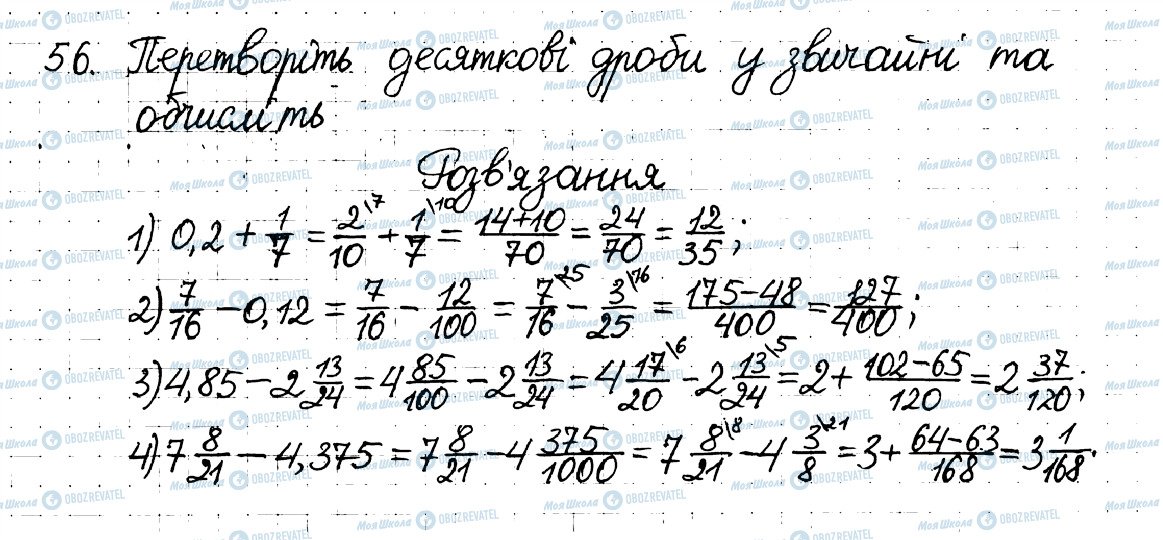 56. Перетворіть десяткові дроби у звичайні та
обчисліть
Розв'язання
1) 0,2 + 1/7 = 2/10 \7 + 1/7 \10 = 14+10/70 = 24/70 = 12/35;
2) 7/16 - 0,12 = 7/16 - 12/100 = 7/16 \25 - 3/25 \16 = 175-48/400 = 127/400;
3) 4,85 - 2 13/24 = 4 85/100 - 2 13/24 = 4 17/20 \6 - 2 13/24 \5 = 2 + 102-65/120 = 2 37/120;
4) 7 8/21 - 4,375 = 7 8/21 - 4 375/1000 = 7 8/21 \8 - 4 3/8 \21 = 3 + 64-63/168 = 3 1/168.
Моя Школа OBOZREVATEL